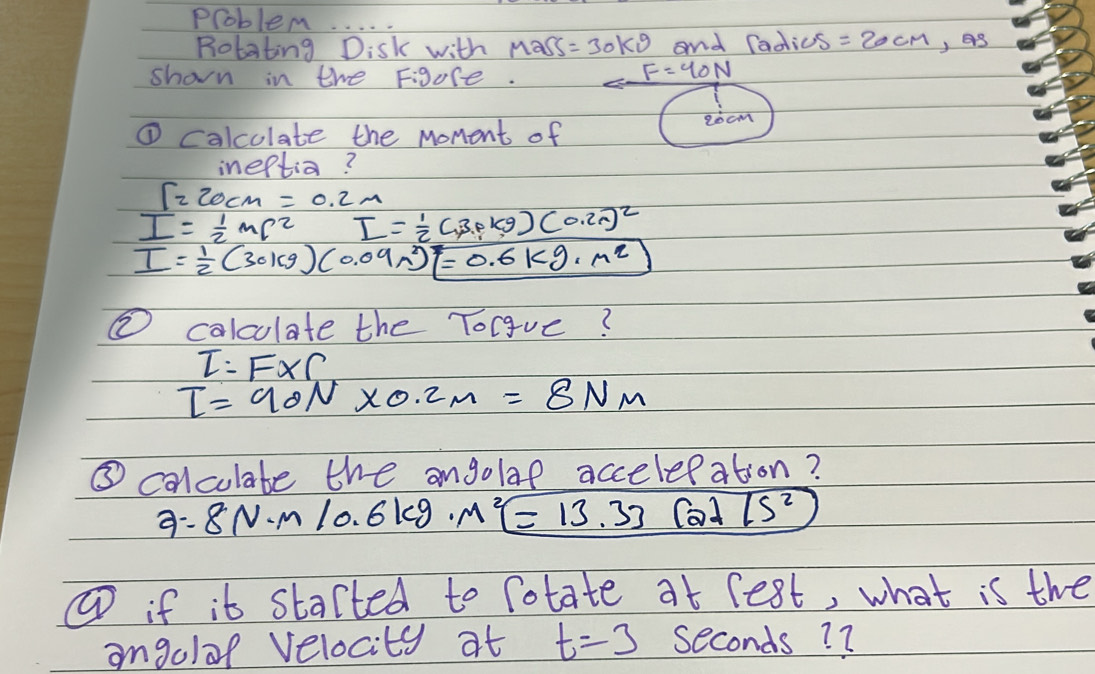 Problem .....
Rotating Disk with Mass = 30KG and radius = 20cm, as
shown in the Figure.
F = 40N
20cm
① Calculate the Moment of
inertia ?
r = 20cm = 0.2m
I = 1/2 mr² I = 1/2 (30kg)(0.2m)²
I = 1/2 (30kg)(0.04m²) = 0.6 Kg.m²
② calculate the Torque ?
τ = F×r
τ = 40N × 0.2m = 8Nm
③ calculate the angular acceleration ?
a = 8N.m / 0.6kg.m² = 13.33 rad/s²
④ if it started to rotate at rest, what is the
angular velocity at t=3 seconds ??